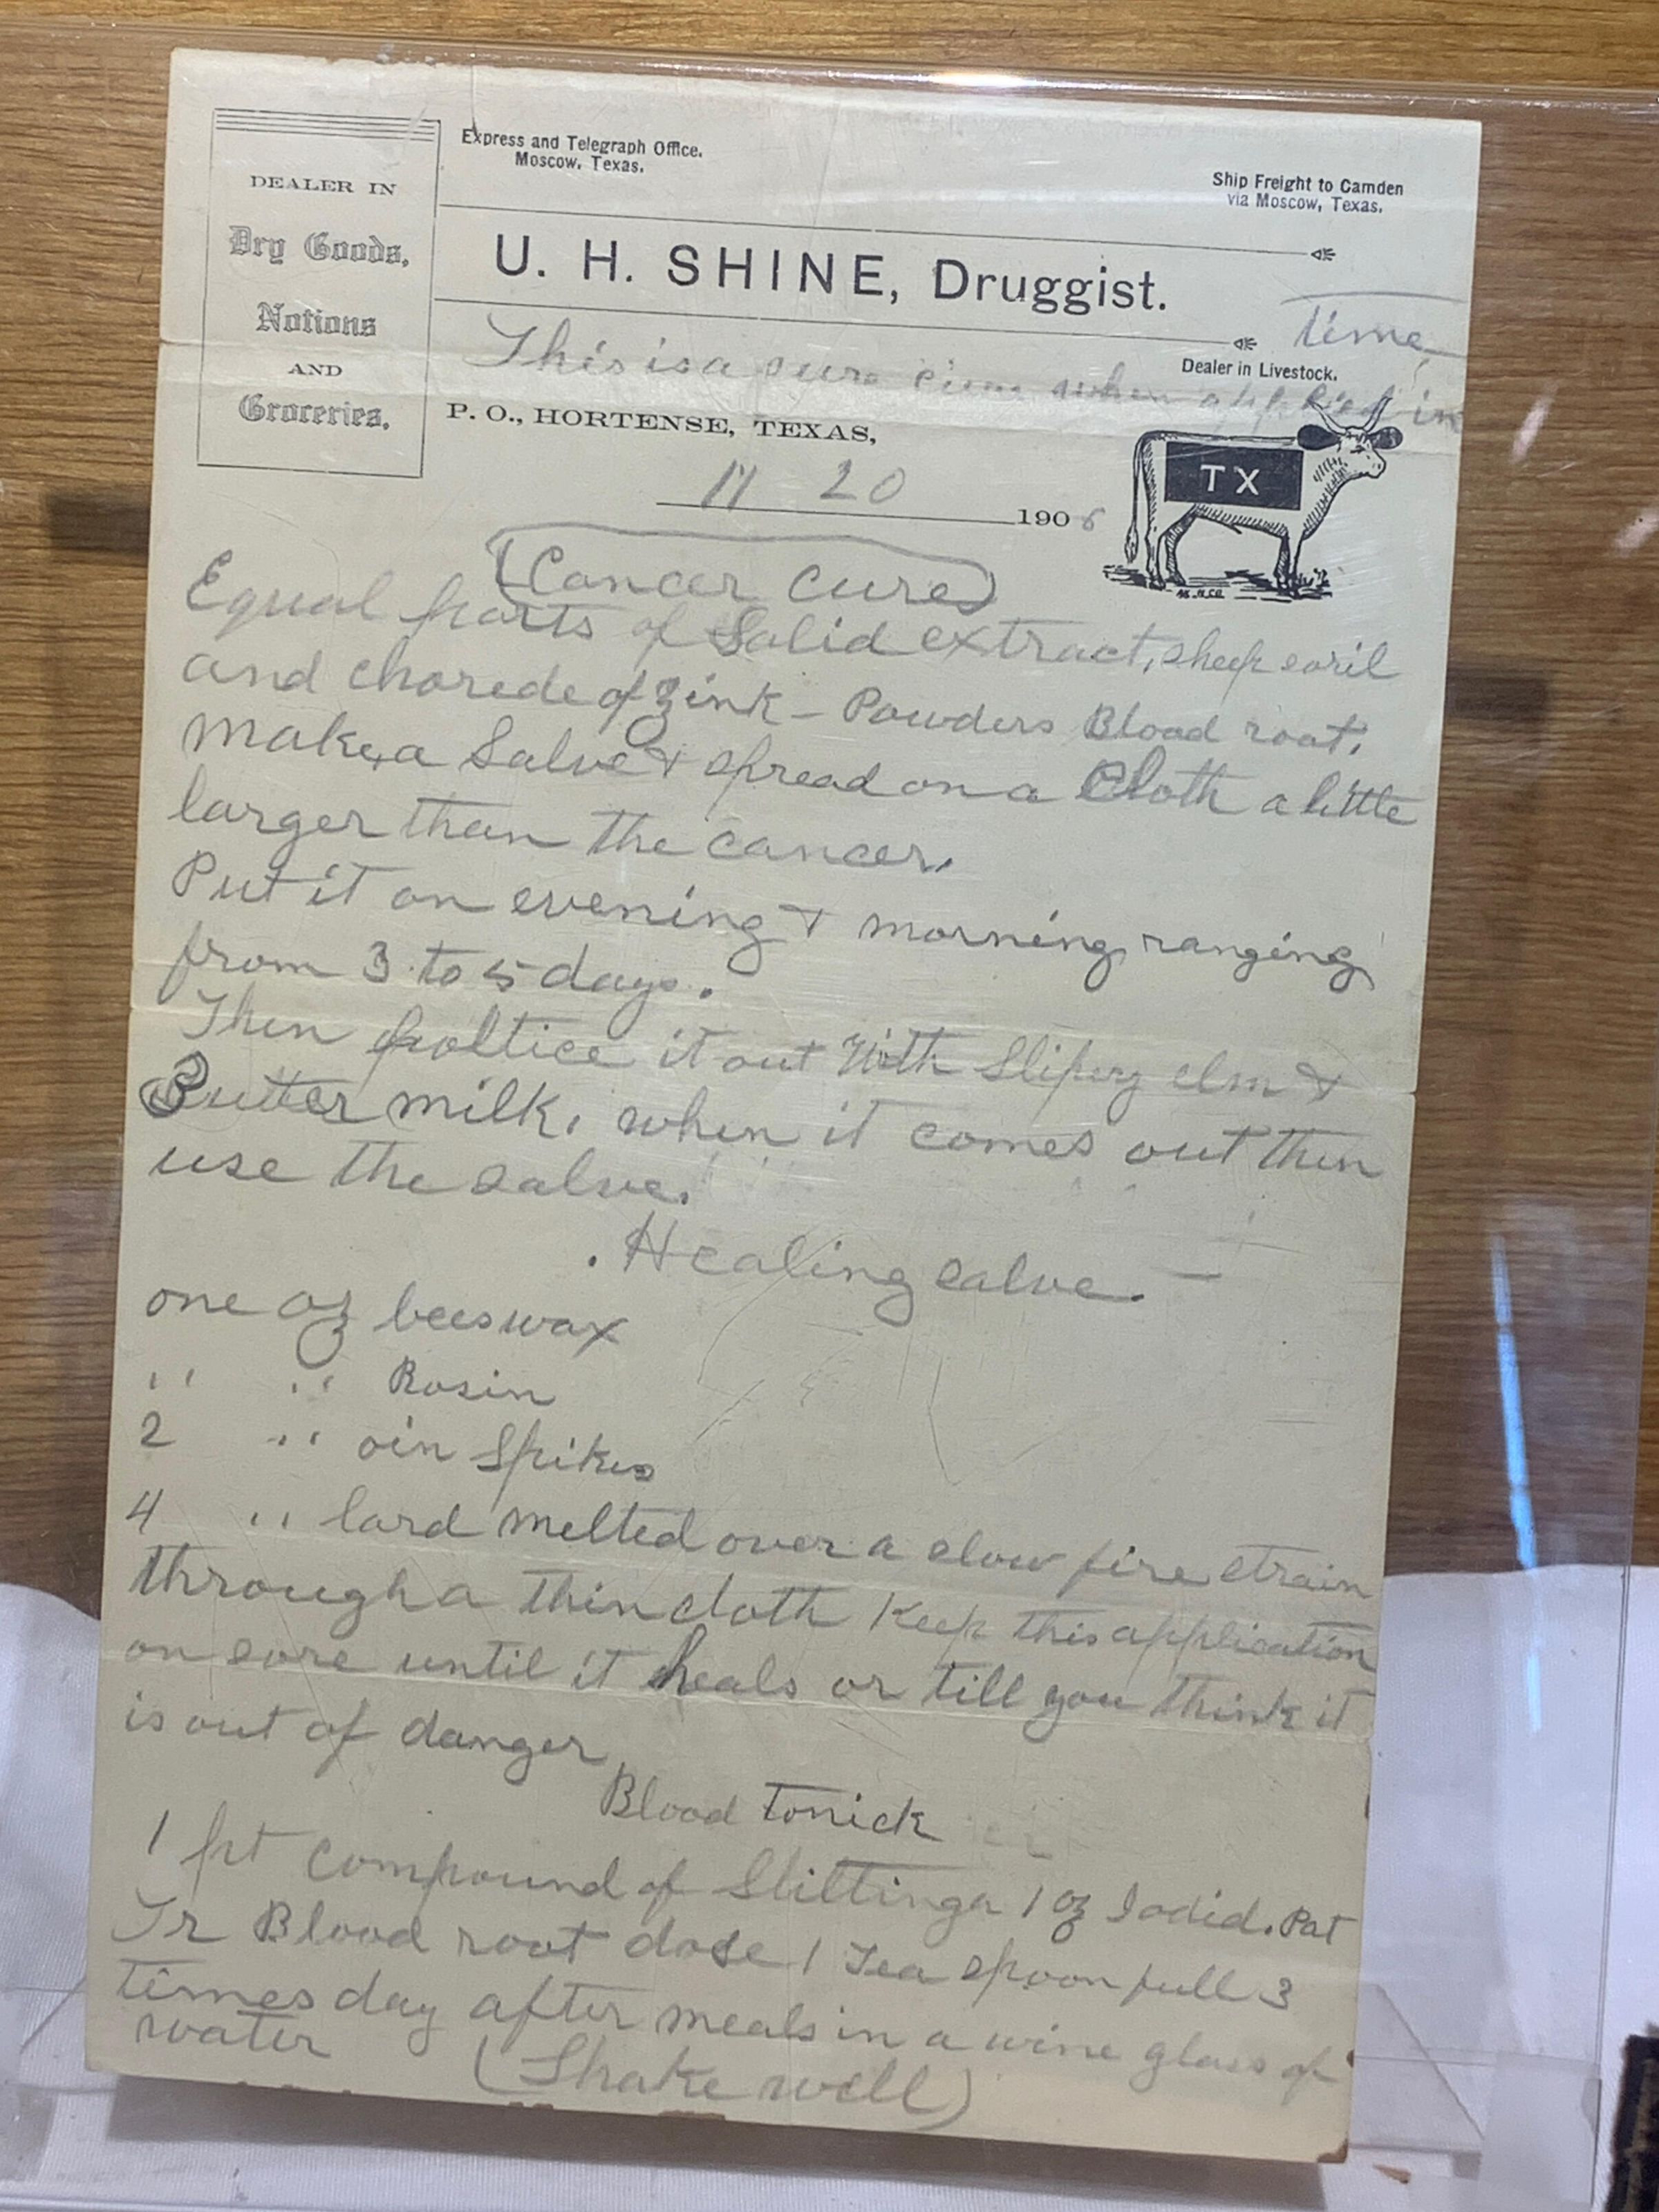 Express and Telegraph Office.
Moscow, Texas.
Ship Freight to Camden
via Moscow, Texas.
DEALER IN
Dry Goods,
Notions
AND
Groceries.
U. H. SHINE, Druggist.
Dealer in Livestock.
This is a sure cure when applied in
time
P. O., HORTENSE, TEXAS,
11 20 1906
TX
Cancer cure
Equal parts of Solid extract, sheep soril
and chorede of zink - Powders Blood root.
make a Salve & spread on a Cloth a little
larger than the cancer.
Put it on evening & morning ranging
from 3 to 5 days.
Then poltice it out With Slipery elm &
Butter milk, when it comes out then
use the salve.
. Healing salve. -
one oz beeswax
" " Rosin
2 " oin Spikes
4 " lard melted over a slow fire strain
through a thin cloth Keep this application
on sore until it heals or till you think it
is out of danger
Blood tonick
1 pt compound of Stittinga 1 oz Iodid. Pat
Tr Blood root dose 1 Tea spoon full 3
times day after meals in a wine glass of
water (Shake well)